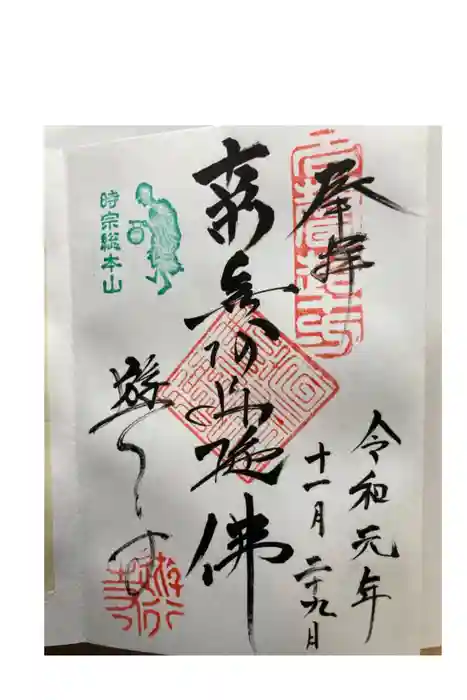 奉拝
令和元年
十一月二十九日
南無阿弥陀佛
時宗総本山
遊行寺
遊行寺